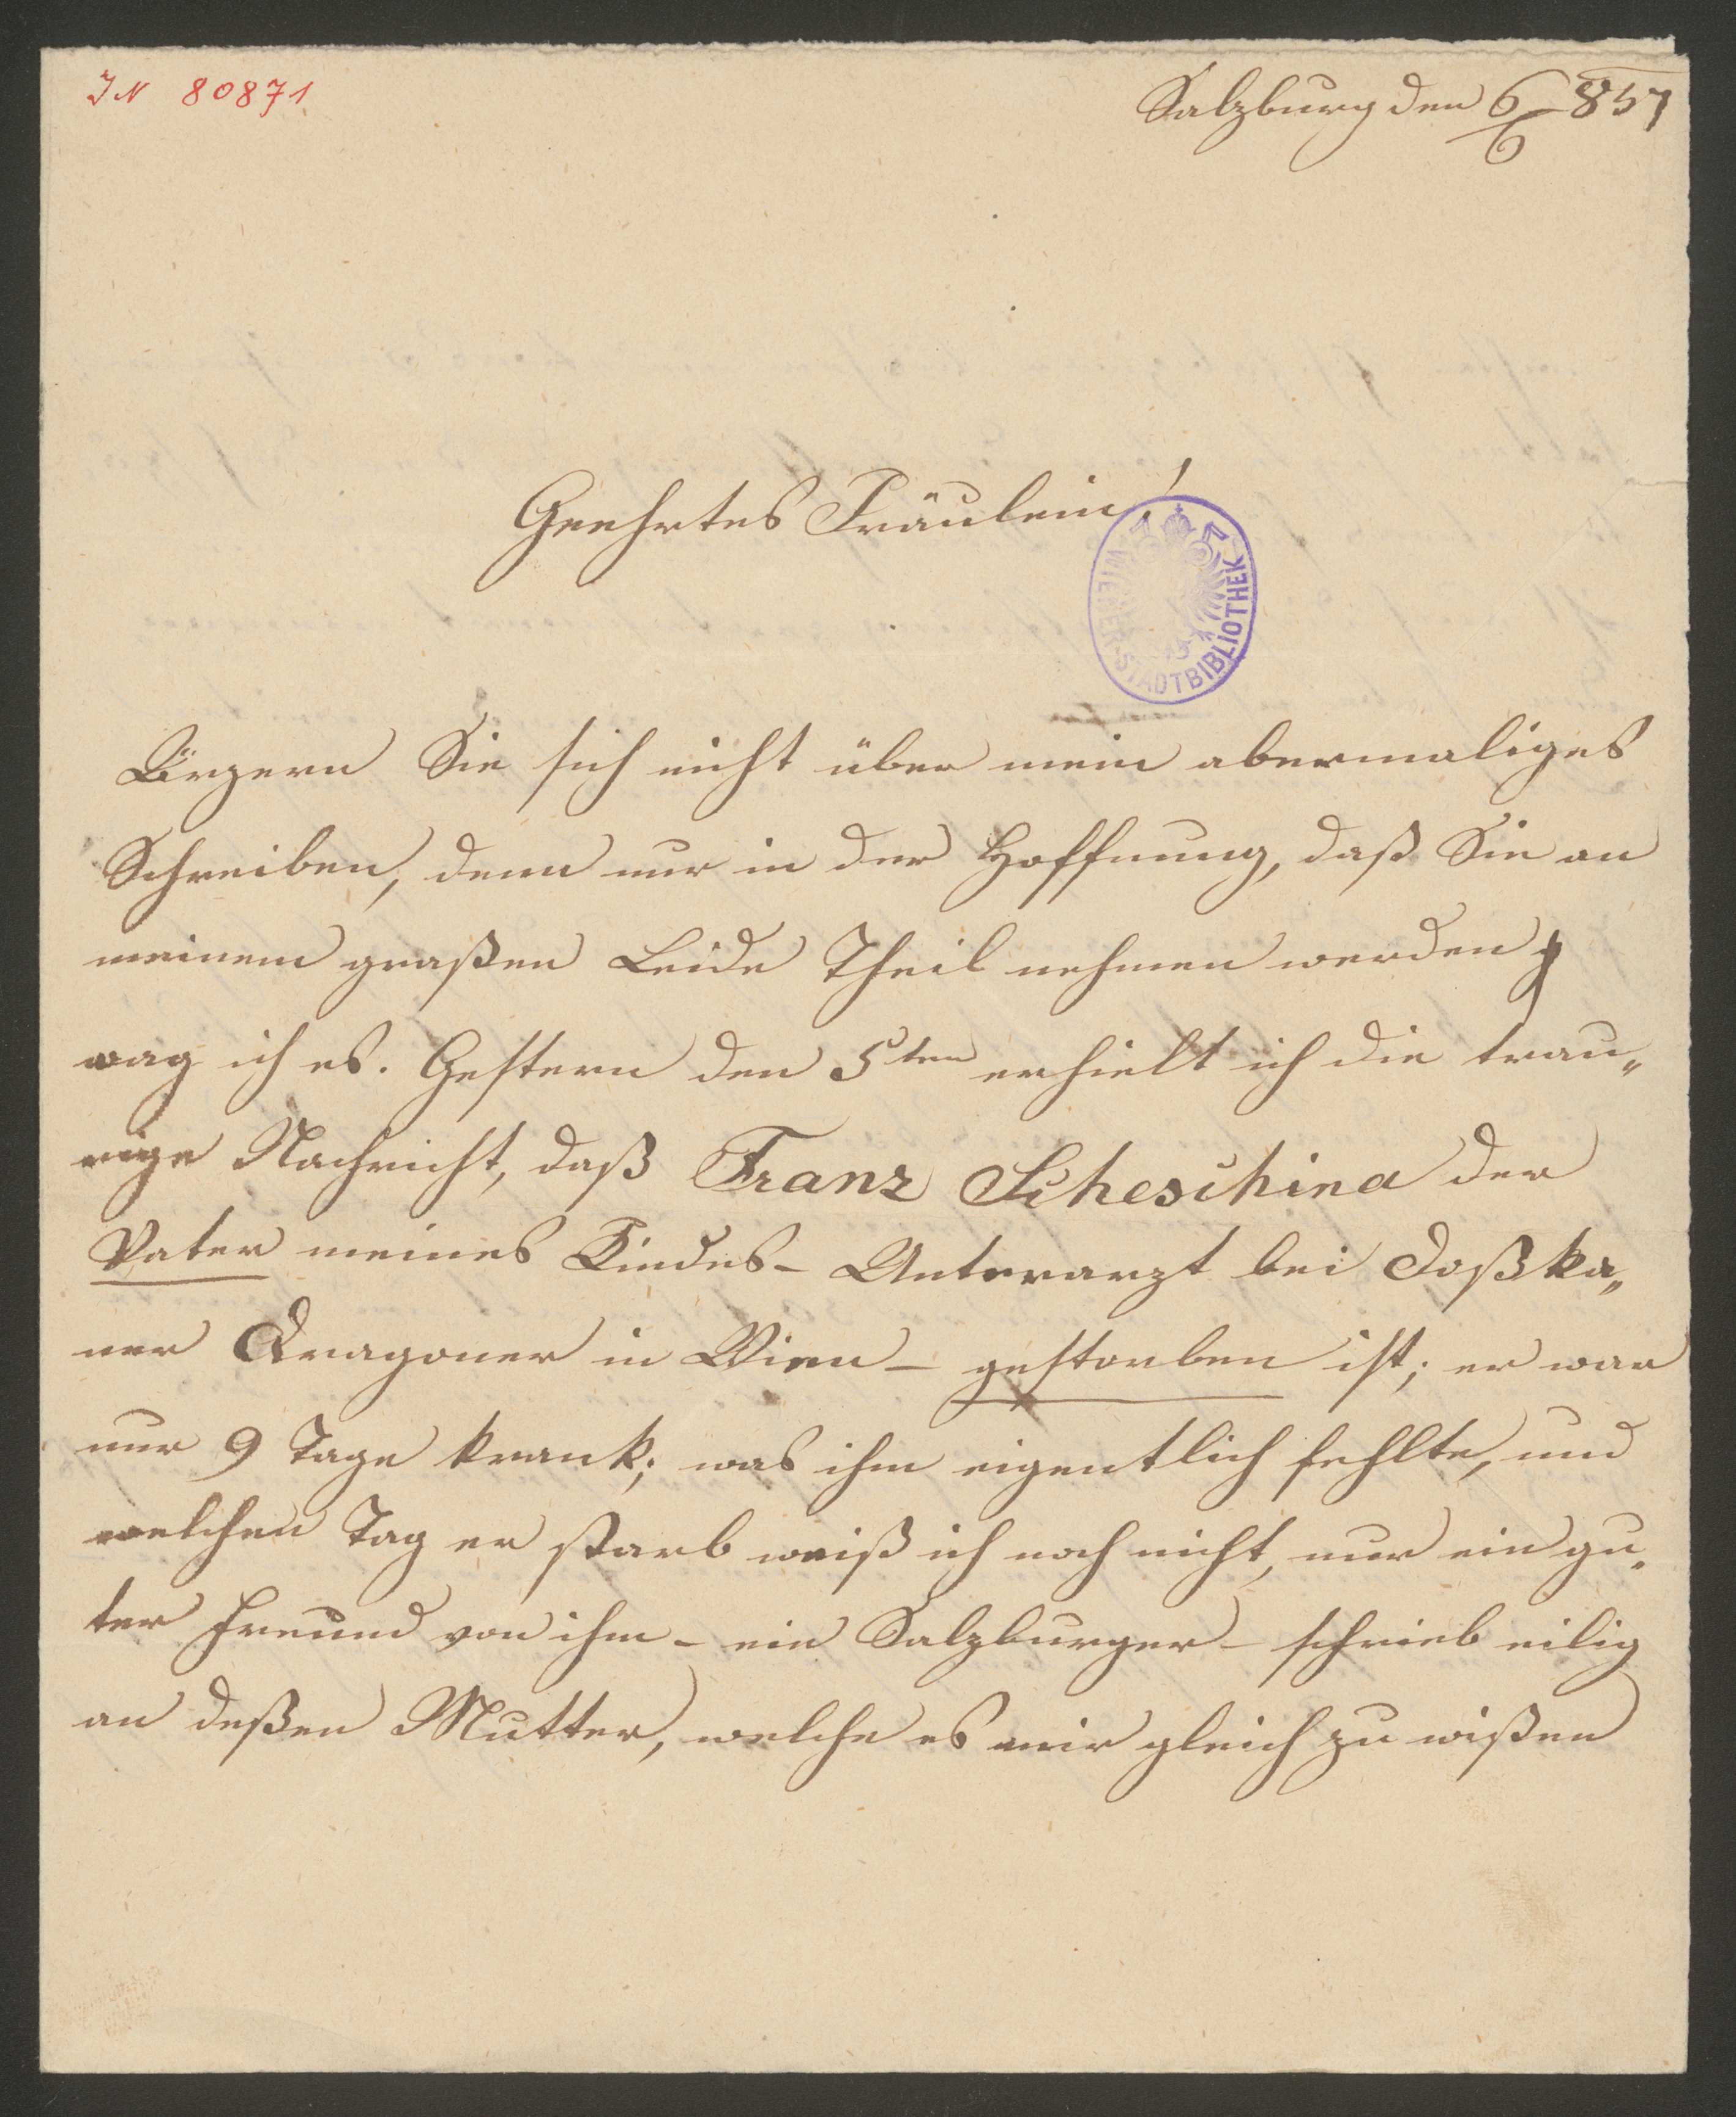 JN 80871
Salzburg den 6/6 857
Geehrtes Fräulein!
WIENER-STADTBIBLIOTHEK
Ärgern Sie sich nicht über mein abermaliges
Schreiben, denn nur in der Hoffnung, daß Sie an
meinem großen Leide Theil nehmen werden
wag ich es. Gestern den 5ten erhielt ich die trau„
rige Nachricht, daß Franz Scheschina der
Vater meines Kindes – Unterarzt bei Doßka„
ner Dragoner in Wien – gestorben ist; er war
nur 9 Tage krank; was ihm eigentlich fehlte, und
welchen Tag er starb weiß ich noch nicht, nur ein gu„
ter Freund von ihm – ein Salzburger – schrieb eilig
an deßen Mutter, welche es mir gleich zu wißen